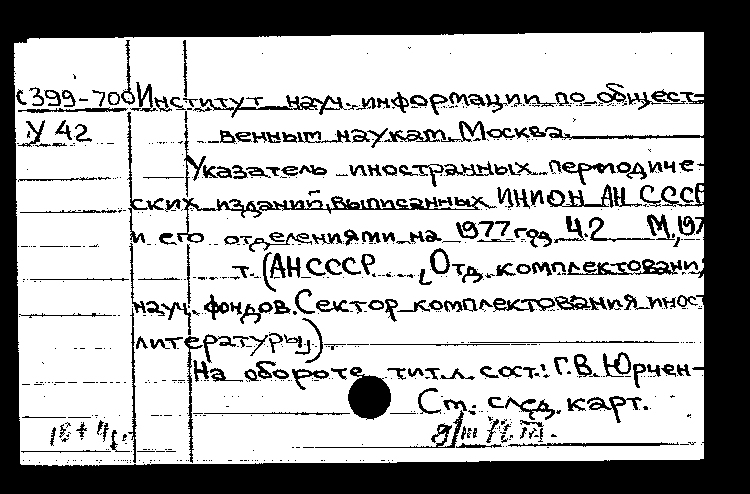 С399-700 Институт науч. информации по общест-
У 42 венным наукам. Москва.
Указатель иностранных периодиче-
ских изданий, выписанных ИНИОН АН СССР
и его отделениями на 1977 год. Ч.2 М., 197
т. (АН СССР ... Отд. комплектовани
науч. фондов. Сектор комплектования иност
литературы).
На обороте тит. л. сост.: Г.В. Юрчен-
См. след. карт.